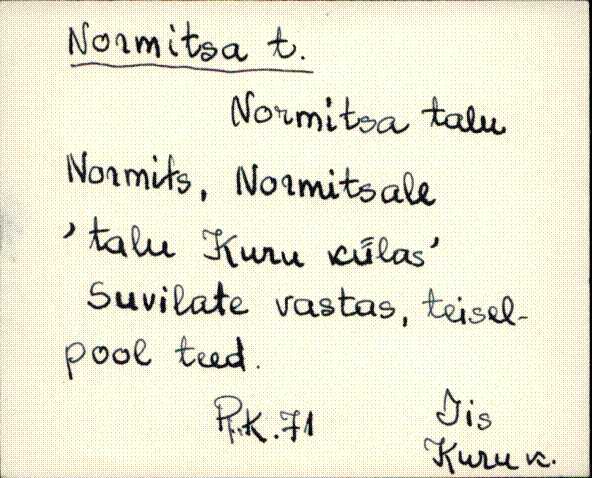 Normitsa t.
Normitsa talu
Normits, Normitsale
'talu Kuru külas'
Suvilate vastas, teisel-
pool teed.
R.K. 71 Iis
Kuru k.